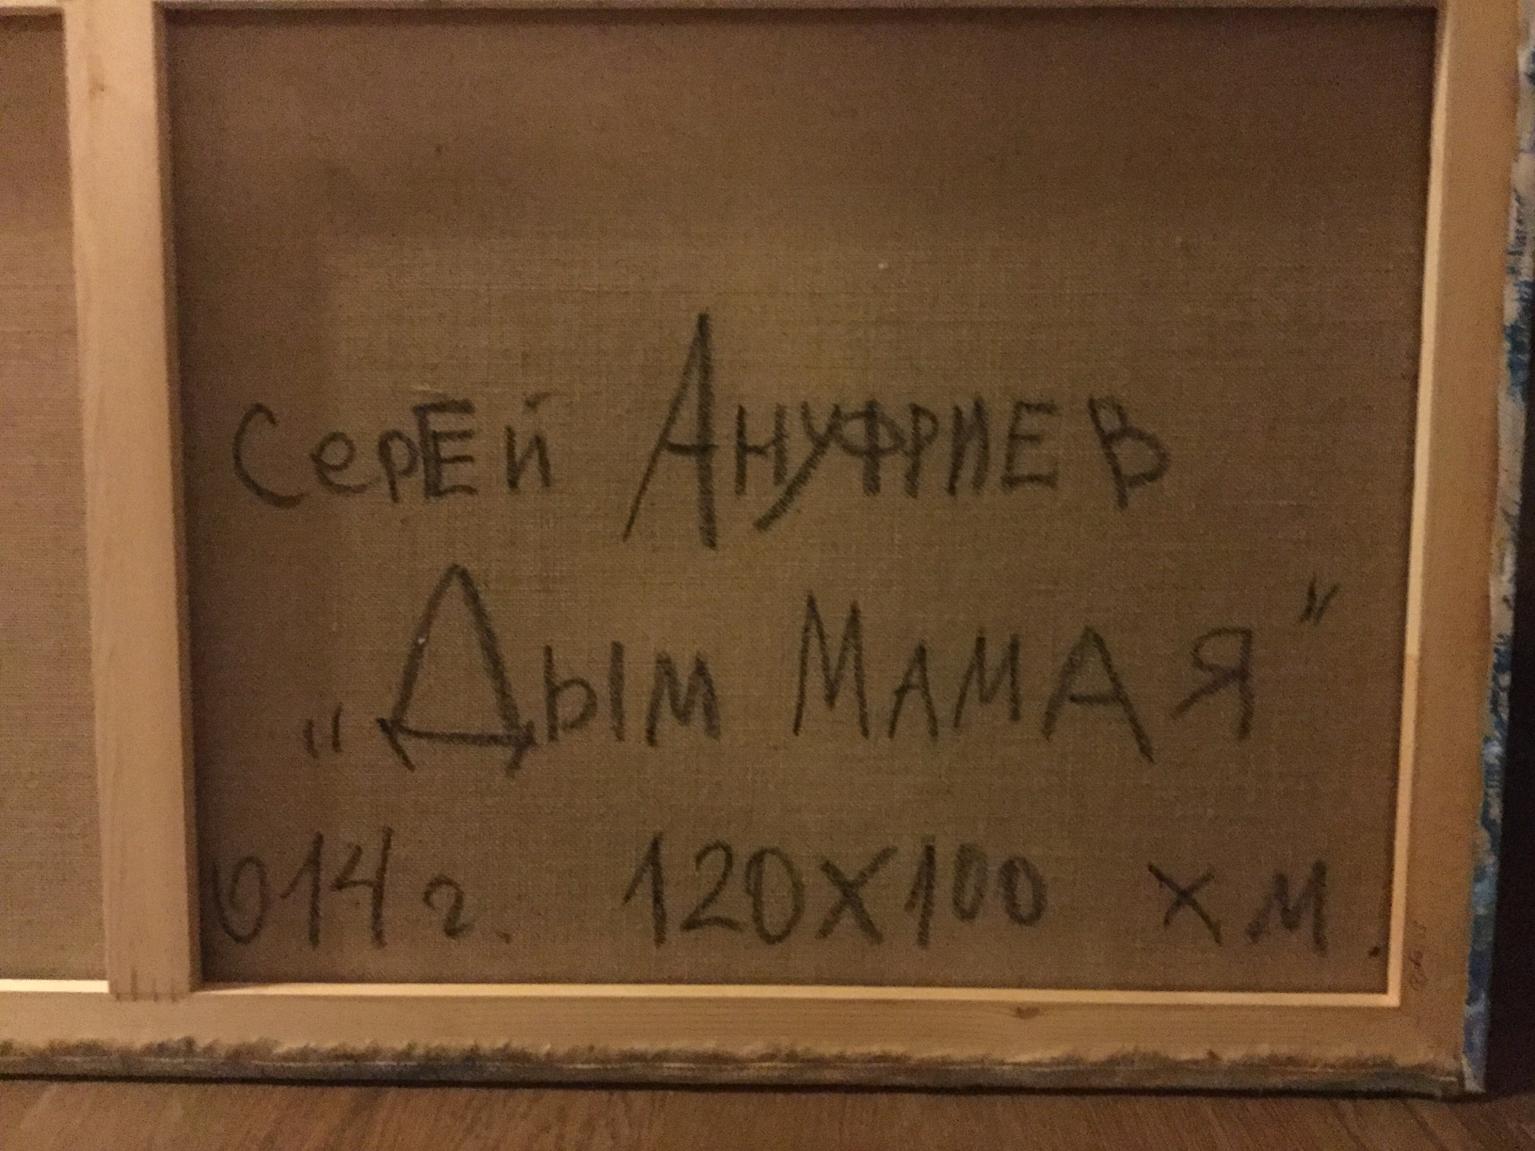 СерЕй Ануфриев
„Дым Мамая"
014г. 120х100 х м.